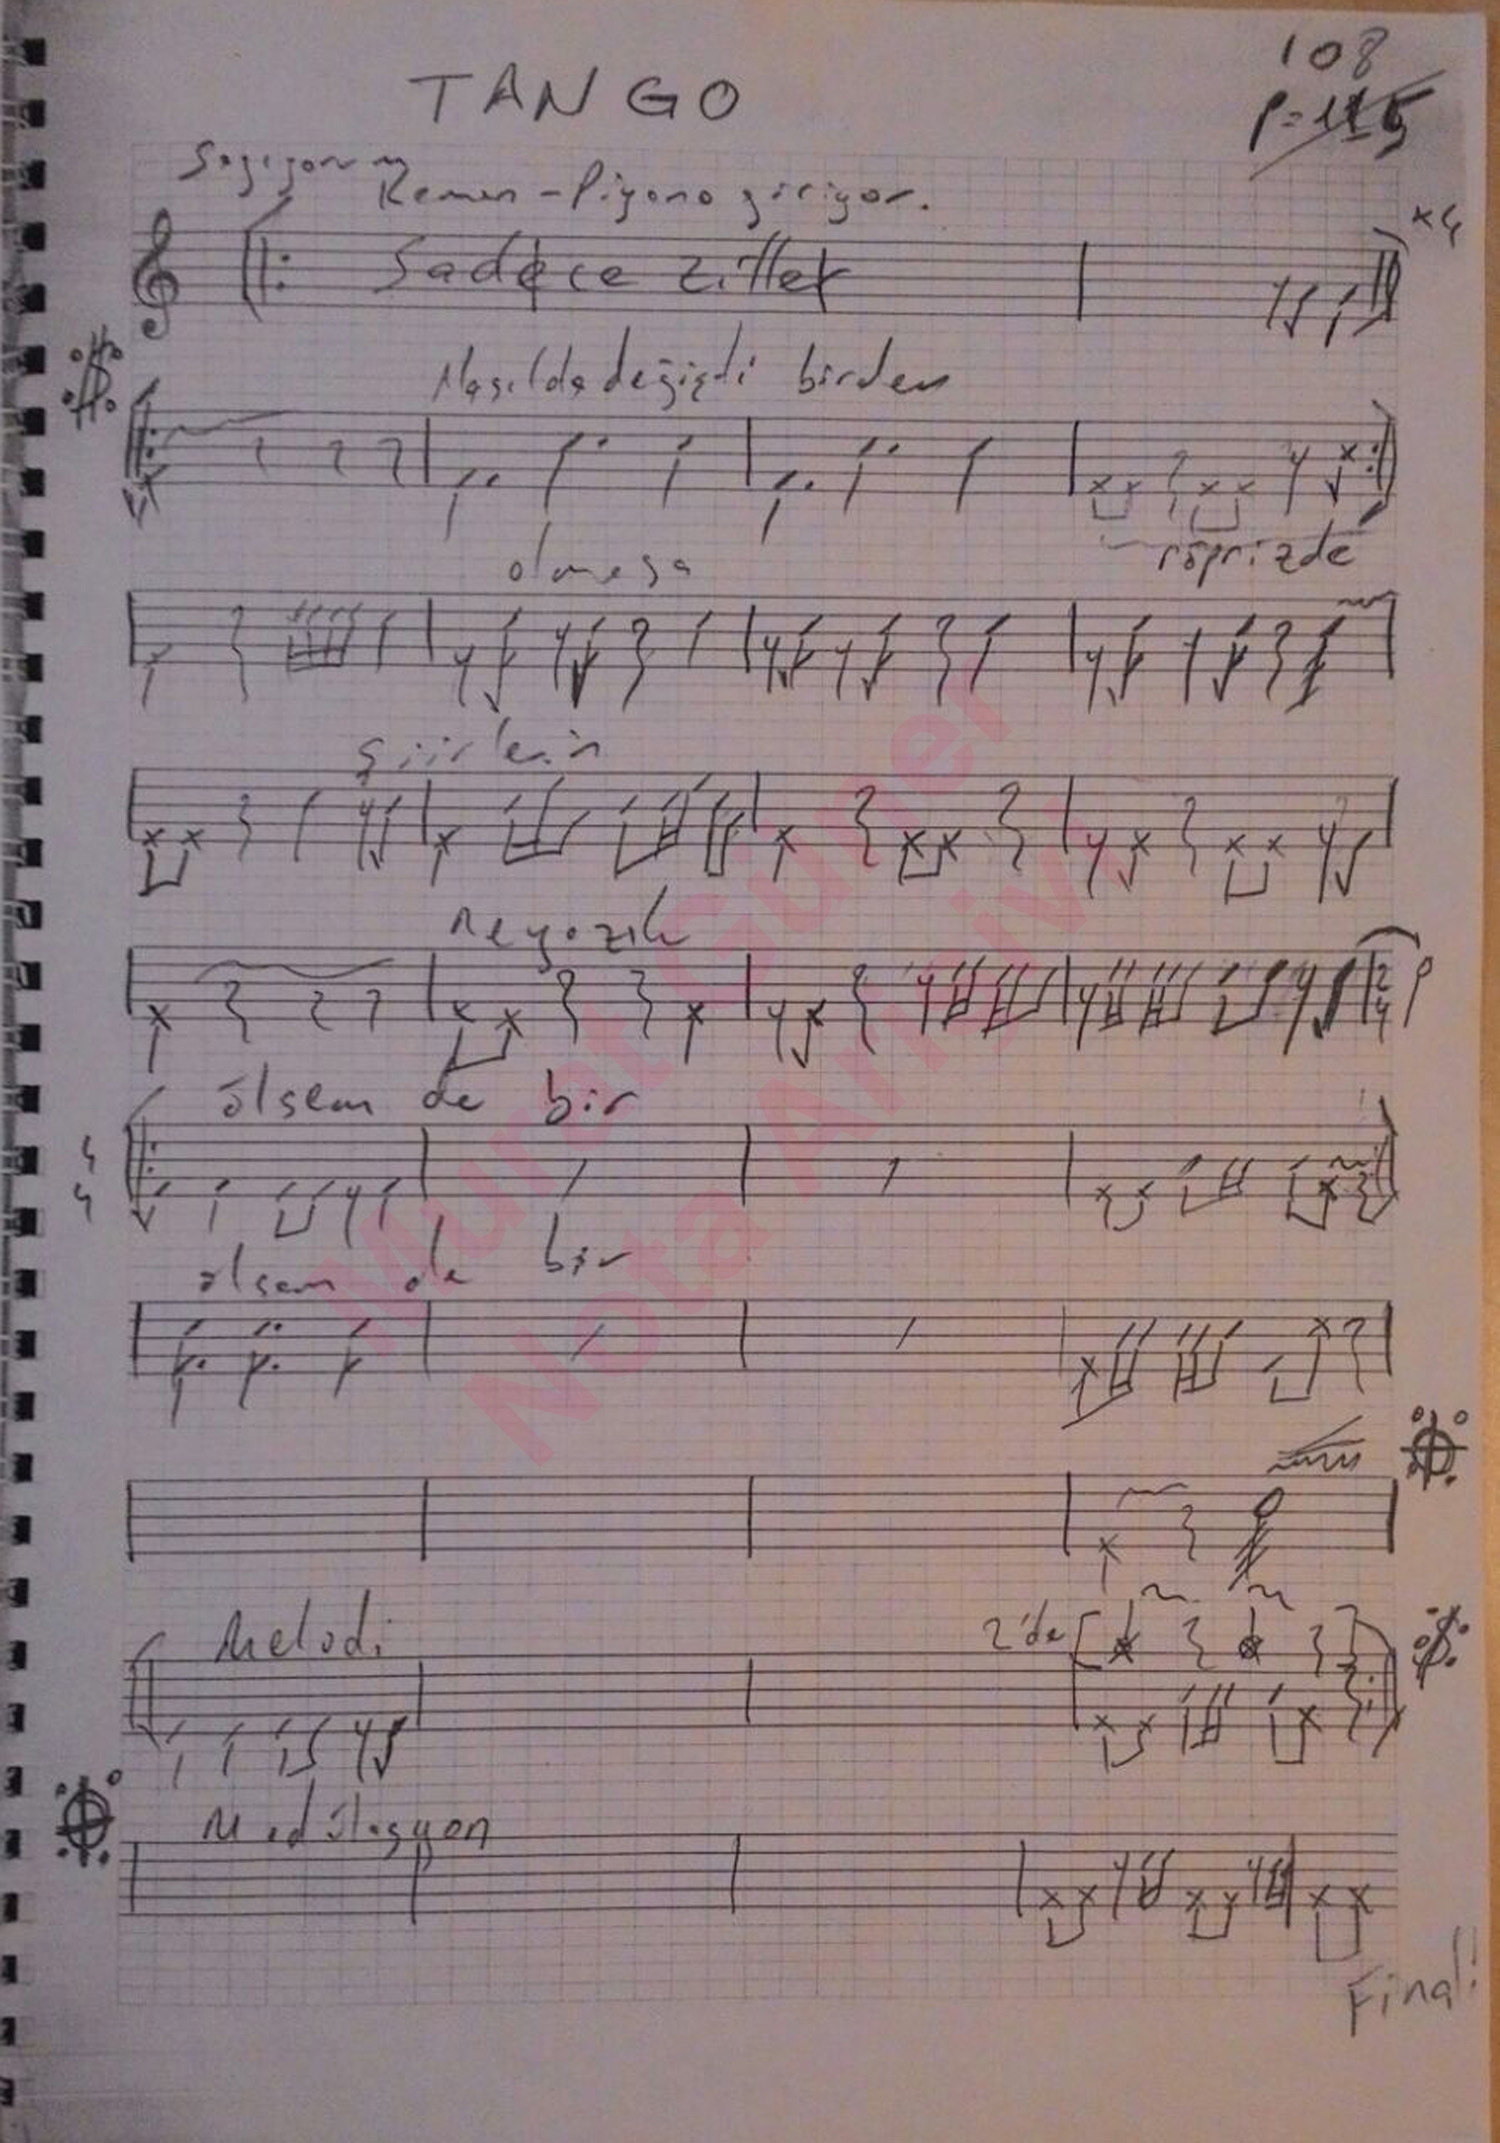 108
TANGO
Sayıyorum
Keman - Piyano giriyor.
x4
Sadece ziller
Nasılda değişti birden
röprizde
olmasa
şiirlerin
ne yazık
2
4
ölsem de bir
4
4
ölsem de bir
Melodi
2'de
Modülasyon
Final!
Murat Güner
Nota Arşivi